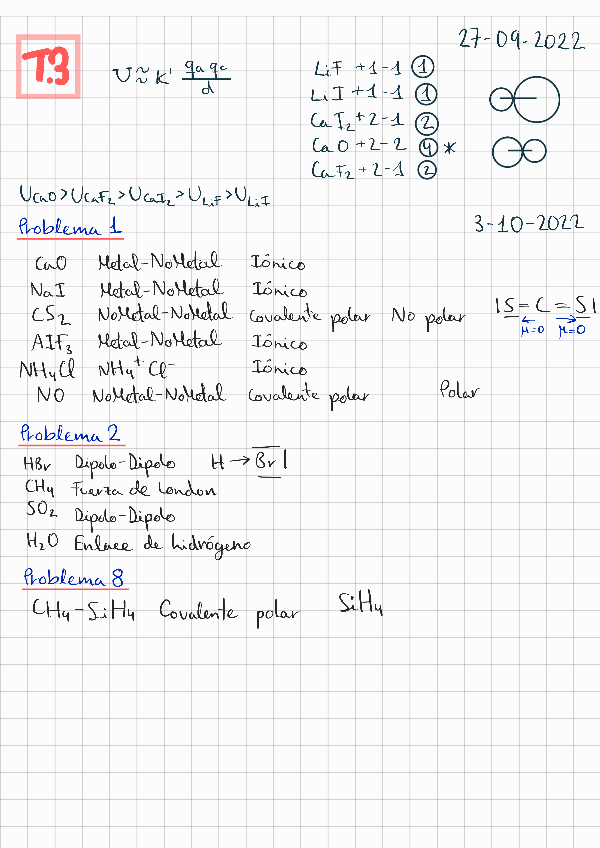 27-09-2022
T.3
U ≈ K' qa qc / d
LiF +1 -1 ①
LiI +1 -1 ①
CaI₂ +2 -1 ②
CaO +2 -2 ④ *
CaF₂ +2 -1 ②
UCaO > UCaF₂ > UCaI₂ > ULiF > ULiI
Problema 1
3-10-2022
CaO Metal-NoMetal Iónico
NaI Metal-NoMetal Iónico
CS₂ NoMetal-NoMetal Covalente polar No polar |S=C=S|
μ=0 μ=0
AlF₃ Metal-NoMetal Iónico
NH₄Cl NH₄⁺ Cl⁻ Iónico
NO NoMetal-NoMetal Covalente polar Polar
Problema 2
HBr Dipolo-Dipolo H → Br|
CH₄ Fuerza de London
SO₂ Dipolo-Dipolo
H₂O Enlace de hidrógeno
Problema 8
CH₄-SiH₄ Covalente polar SiH₄